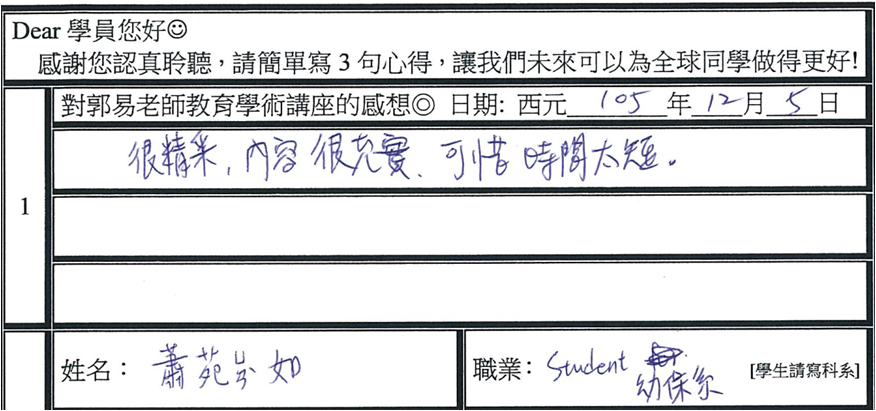 Dear 學員您好☺
感謝您認真聆聽，請簡單寫3句心得，讓我們未來可以為全球同學做得更好!
1
對郭易老師教育學術講座的感想◎ 日期: 西元 105 年 12 月 5 日
很精采，內容很充實、可惜時間太短。
姓名： 蕭苑岑如
職業： Student 幼保系 [學生請寫科系]